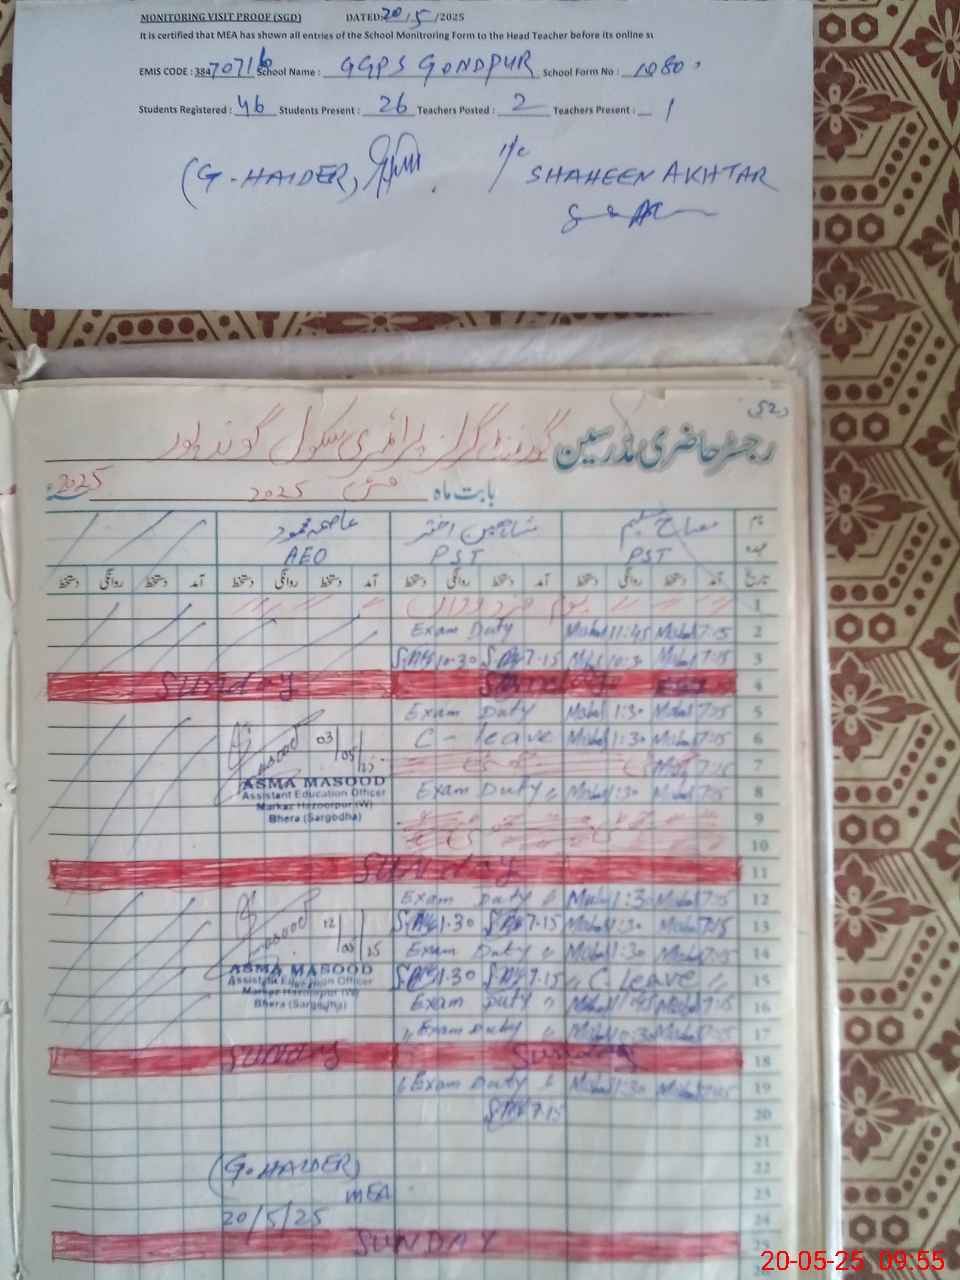 MONITORING VISIT PROOF (SGD) DATED: 20/5/2025
It is certified that MEA has shown all entries of the School Monitroring Form to the Head Teacher before its online su
EMIS CODE : 38470716 School Name : GGPS GONDPUR School Form No : 1080
Students Registered : 46 Students Present : 26 Teachers Posted : 2 Teachers Present : 1
(G. HAIDER) I/C SHAHEEN AKHTAR
رجسٹر حاضری مدرسین گورنمنٹ گرلز پرائمری سکول گوندپور
بابت ماہ مئی 2025 2025
نام مصباح شاہین اختر عاصمہ محمود
عہدہ PST PST AEO
تاریخ آمد دستخط روانگی دستخط آمد دستخط روانگی دستخط آمد دستخط روانگی دستخط آمد دستخط روانگی دستخط
1
2 7:15 11:45 Exam Duty
3 7:15 10:30 7-15 10-30
4 Sunday Sunday
5 7:15 1:30 Exam Duty
6 7:15 1:30 C - leave
7 7:15
8 7:15 1:30 Exam Duty
9
10
03/05/25
ASMA MASOOD
Assistant Education Officer
Markaz Hazoorpur (W)
Bhera (Sargodha)
11 Sunday
12 7:15 1:30 Exam Duty
13 7:15 1:30 7-15 1-30
14 7:15 1:30 Exam Duty
15 C leave 7-15 1-30
16 7:15 11:45 Exam Duty
17 7:15 Exam Duty
12/05/25
ASMA MASOOD
Assistant Education Officer
Markaz Hazoorpur (W)
Bhera (Sargodha)
18 Sunday Sunday
19 7:15 1:30 Exam Duty
20 7-15
21
22 (G. HAIDER)
23 MEA
24 20/5/25
25 SUNDAY
20-05-25 09:55